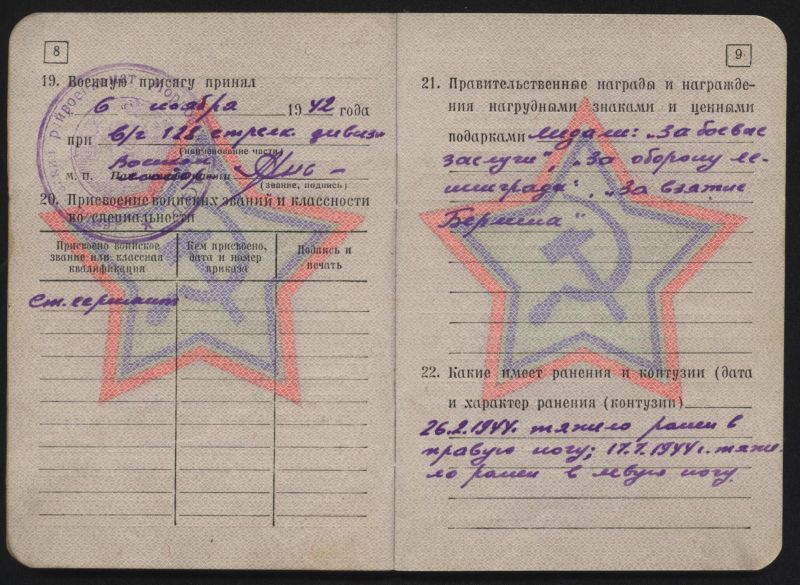 8
19. Военную присягу принял
6 " ноября 1942 года
при б/г 128 стрелк. дивиз
(наименование части)
М. П.
(звание, подпись)
20. Присвоение воинских званий и классности
по специальности
Присвоено воинское звание или классная квалификация
Кем присвоено, дата и номер приказа
Подпись и печать
Ст. сержант
9
21. Правительственные награды и награжде-
ния нагрудными знаками и ценными
подарками Медали: „За боевые
заслуги", „За оборону Ле-
нинграда", „За взятие
Берлина"
22. Какие имеет ранения и контузии (дата
и характер ранения (контузии)
26.2.1944г. тяжело ранен в
правую ногу; 17.7.1944г. тяже-
ло ранен в левую ногу.